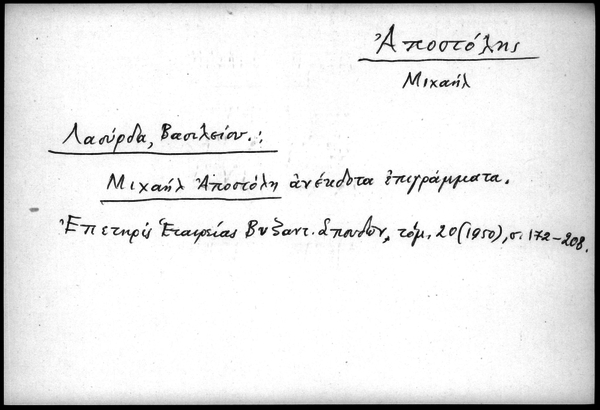 Ἀποστόλης
Μιχαήλ
Λαούρδα, Βασιλείου.:
Μιχαήλ Ἀποστόλη ἀνέκδοτα ἐπιγράμματα.
Ἐπετηρὶς Ἑταιρείας Βυζαντ. Σπουδῶν, τόμ. 20 (1950), σ. 172-208.